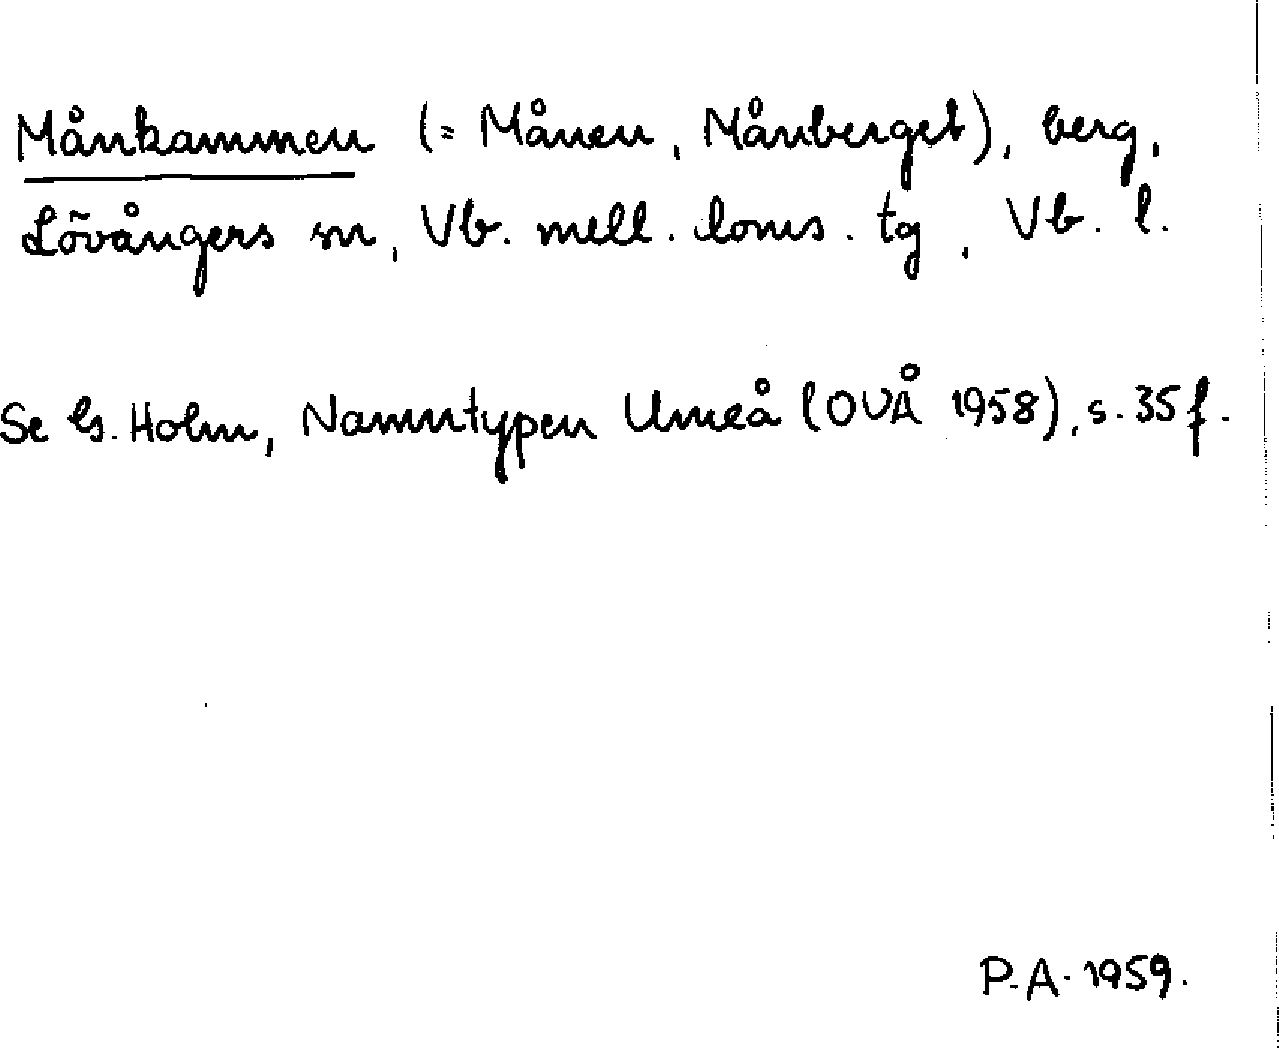 Månkammen (= Månen, Månberget), berg,
Lövångers sn, Vb. mell. doms. tg, Vb. l.
Se G. Holm, Namntypen Umeå (OUÅ 1958), s. 35 f.
P.A. 1959.